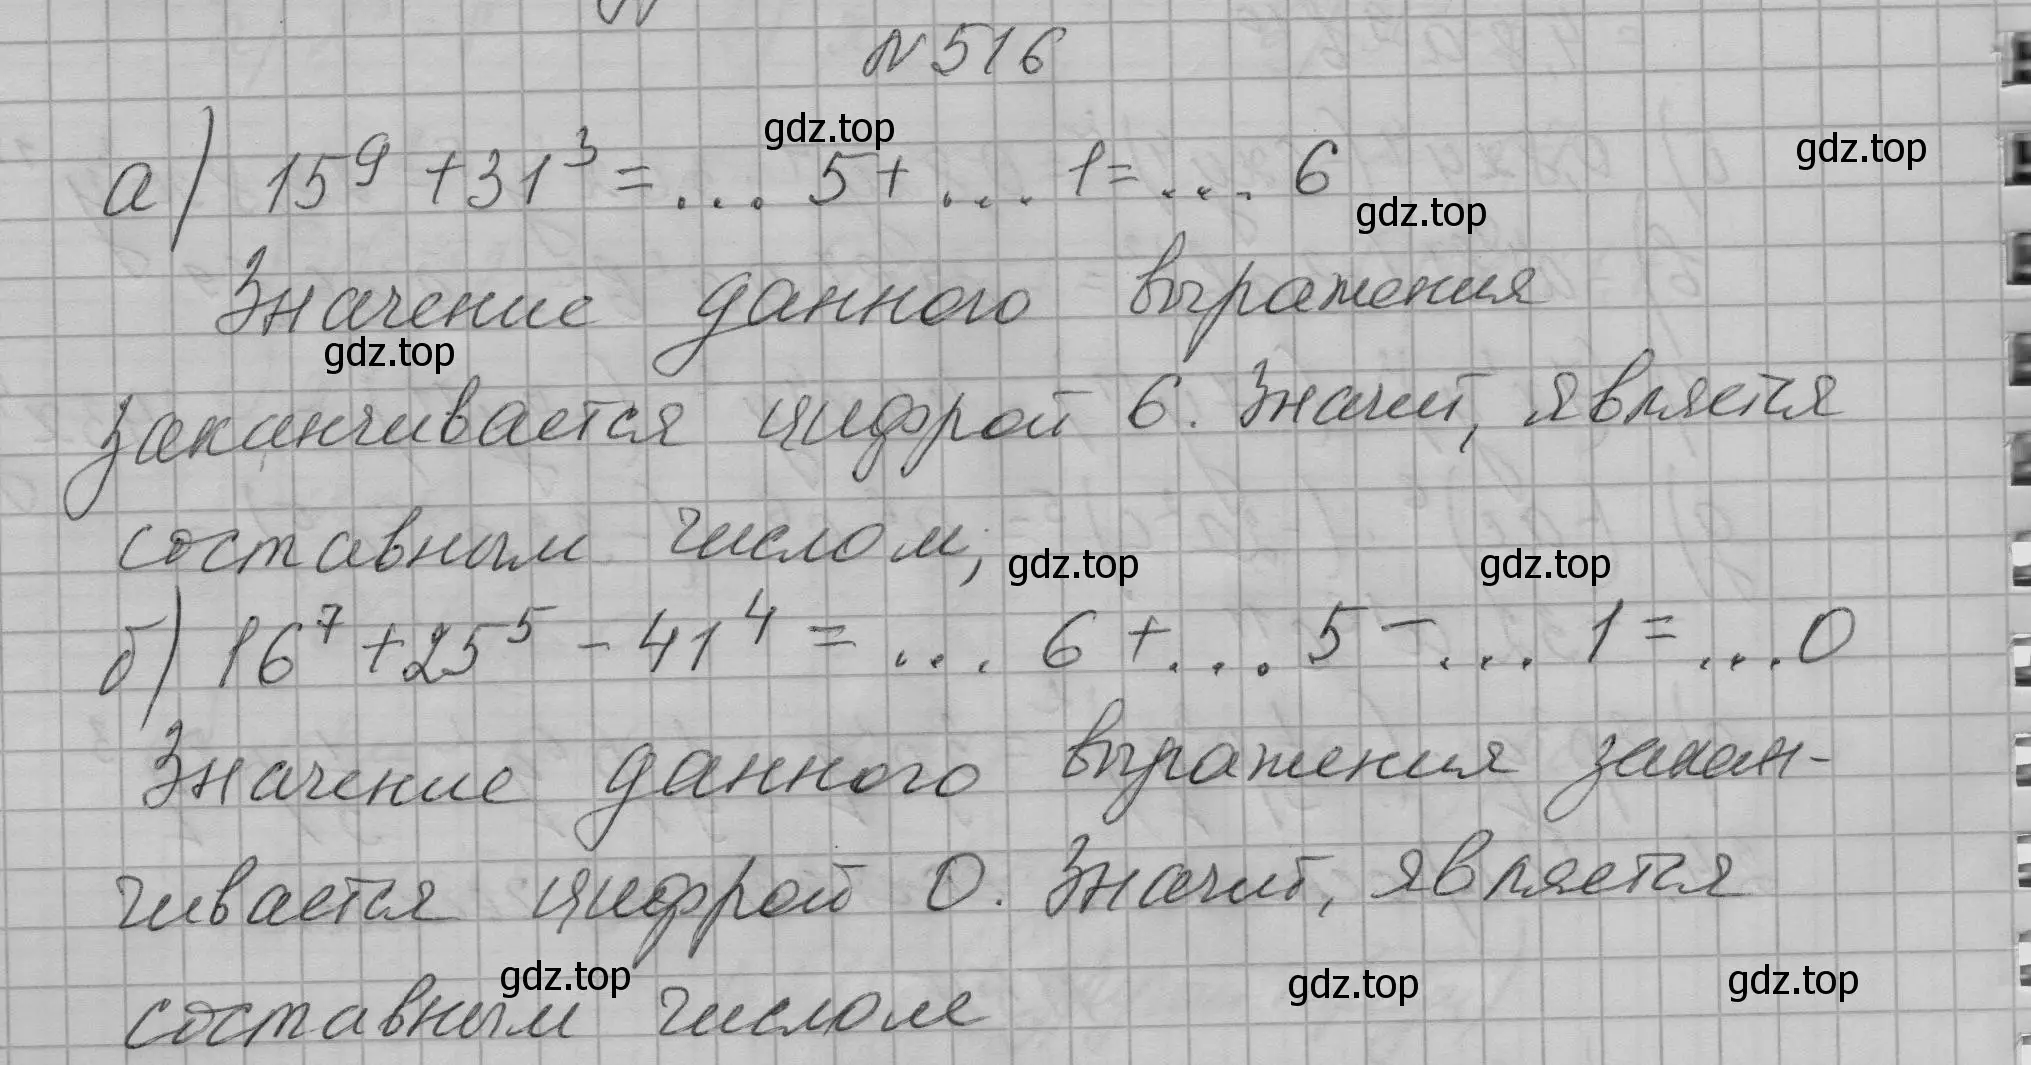 №516
gdz.top
а) 15⁹ + 31³ = ... 5 + ... 1 = ... 6
gdz.top
gdz.top
Значение данного выражения
gdz.top
заканчивается цифрой 6. Значит, является
составным числом;
gdz.top
gdz.top
б) 16⁷ + 25⁵ - 41⁴ = ... 6 + ... 5 - ... 1 = ...0
Значение данного выражения закан-
чивается цифрой 0. Значит, является
gdz.top
gdz.top
gdz.top
составным числом